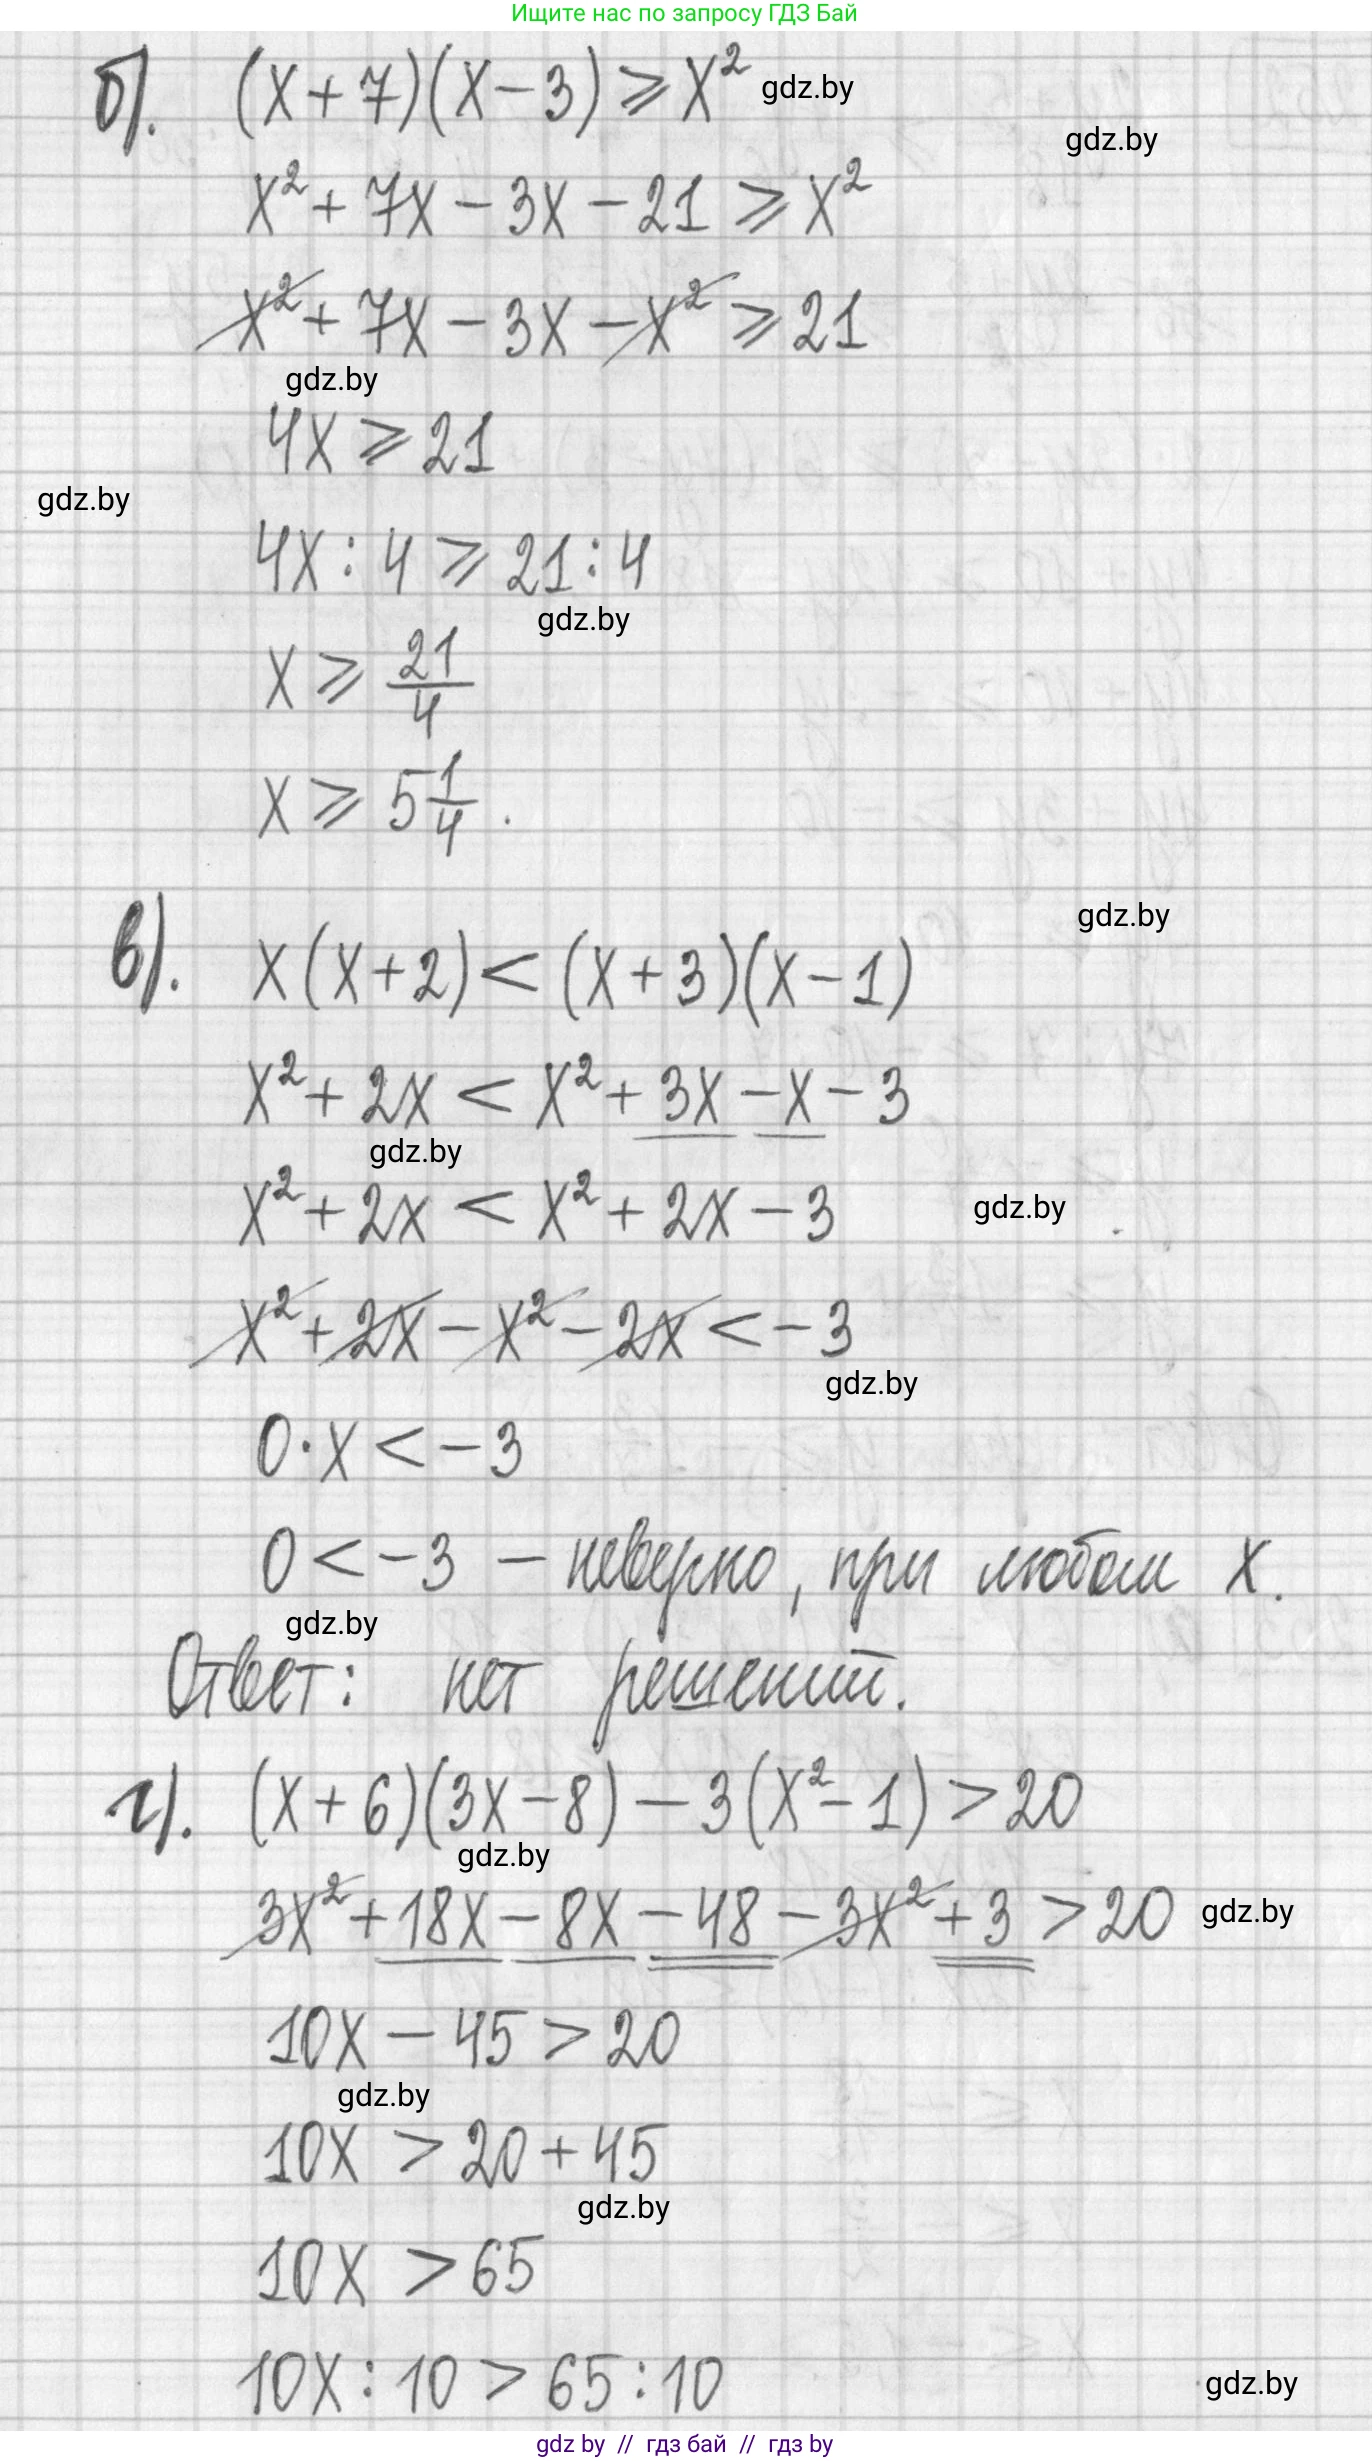 Ищите нас по запросу ГДЗ Бай
б). (x+7)(x-3)⩾x² gdz.by
gdz.by
x²+7x-3x-21⩾x²
x²+7x-3x-x²⩾21
gdz.by
4x⩾21
gdz.by
4x:4⩾21:4
gdz.by
x⩾21/4
x⩾5 1/4.
gdz.by
в). x(x+2)<(x+3)(x-1)
x²+2x<x²+3x-x-3
gdz.by
x²+2x<x²+2x-3 gdz.by
x²+2x-x²-2x<-3
gdz.by
0·x<-3
0<-3 - неверно, при любом x.
gdz.by
Ответ: нет решений.
г). (x+6)(3x-8)-3(x²-1)>20
gdz.by
3x²+18x-8x-48-3x²+3>20 gdz.by
10x-45>20
gdz.by
10x>20+45
gdz.by
10x>65
10x:10>65:10 gdz.by
gdz by // гдз бай // гдз by